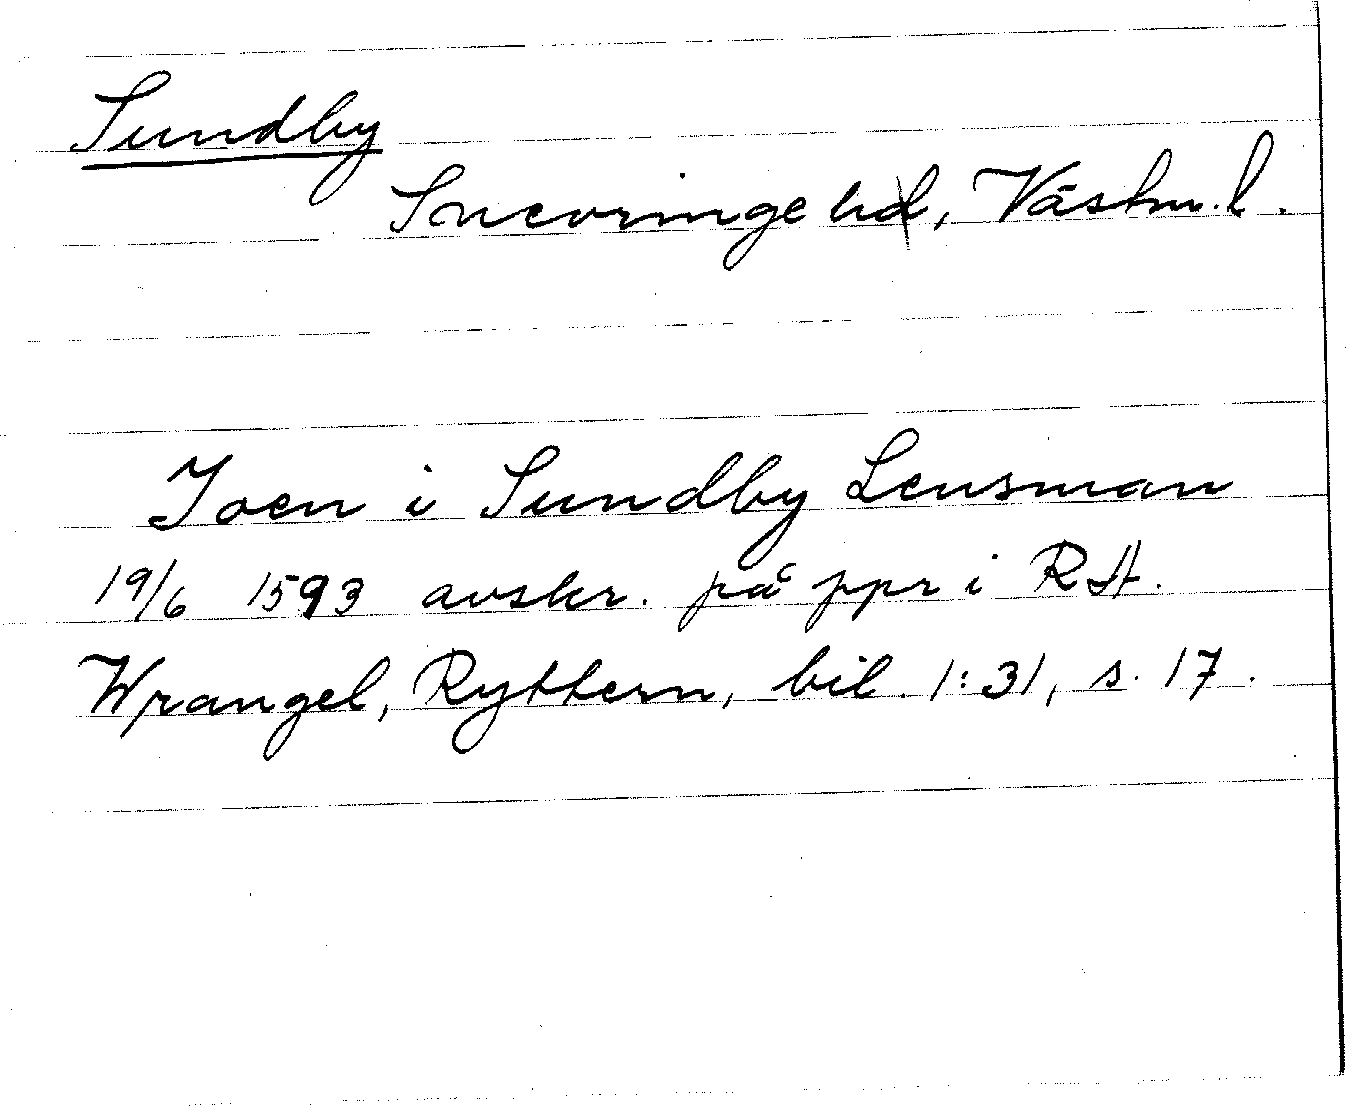 Sundby
Snevringe hd, Västm. l.
Joen i Sundby Lensman
19/6 1593 avskr. på ppr i RA.
Wrangel, Ryttern, bil. 1:31, s. 17.